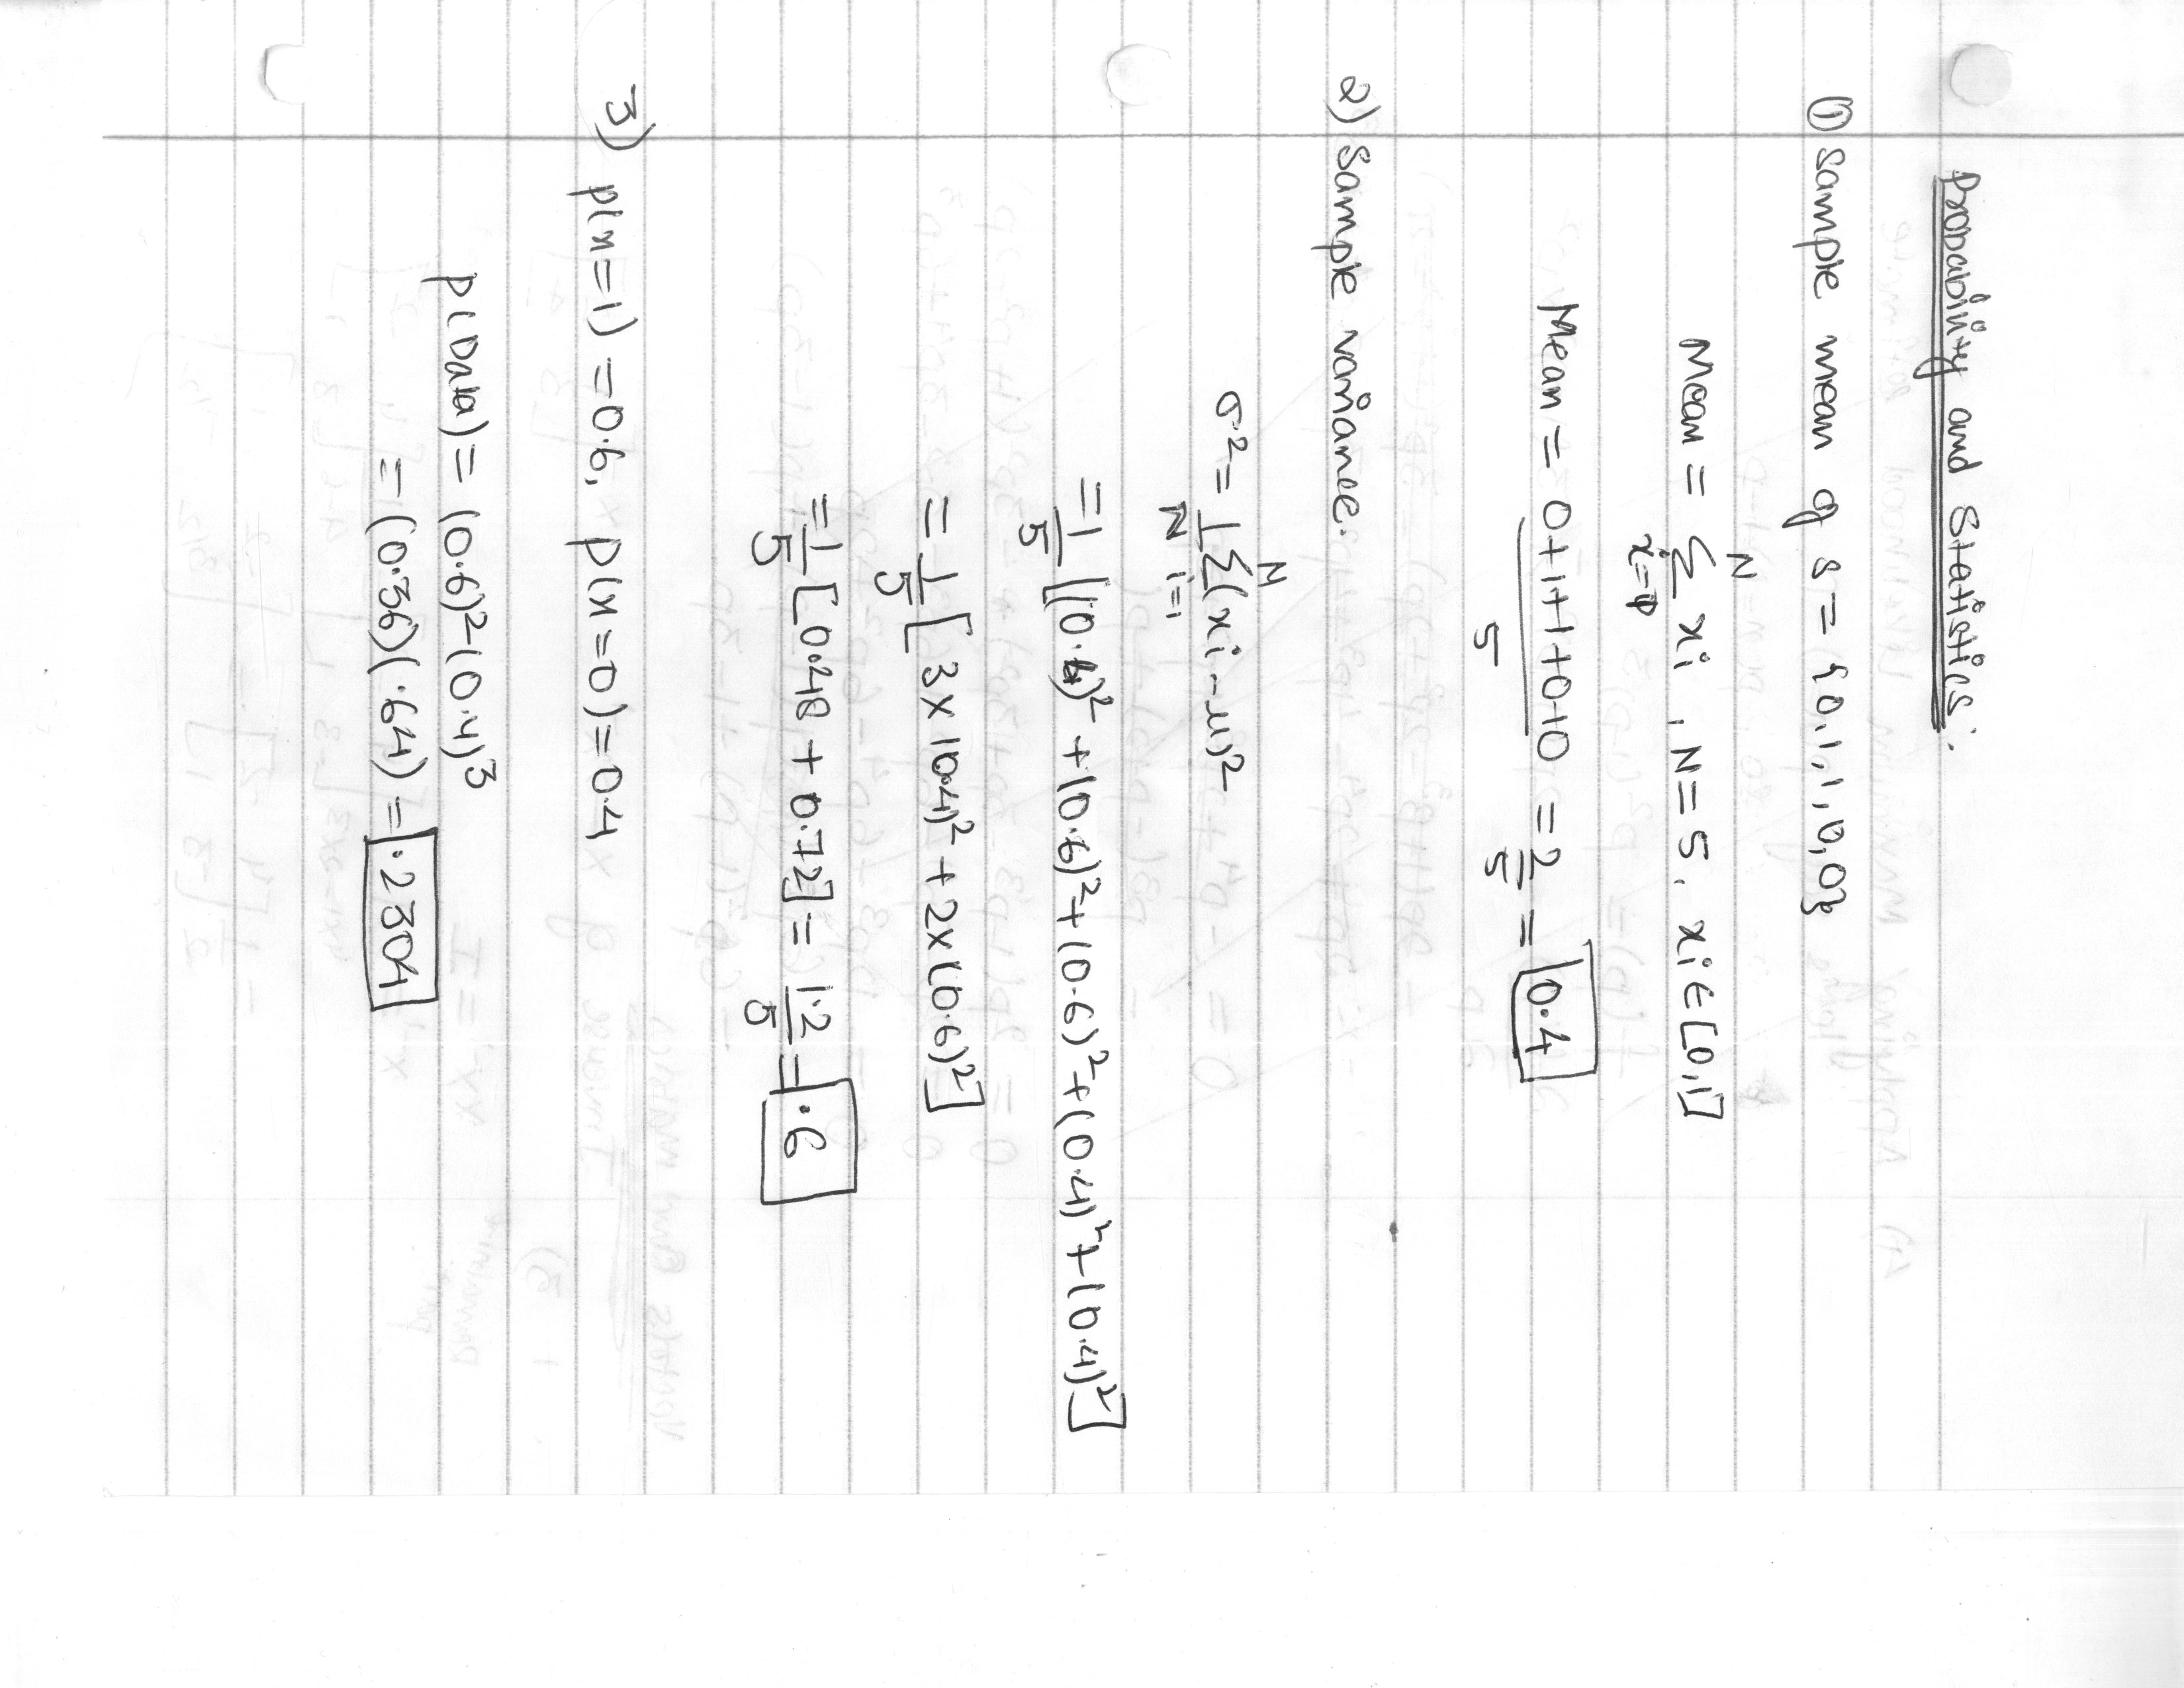 Probability and Statistics:
① Sample mean of S = {0,1,1,0,0}
Mean = N Σ xi , N=5, xi ∈ [0,1]
Mean = 0+1+1+0+0 / 5 = 2/5 = 0.4
2) Sample variance.
σ² = 1/N Σ N i=1 (xi - μ)²
= 1/5 [(0.4)² + (0.6)² + (0.6)² + (0.4)² + (0.4)²]
= 1/5 [3 x (0.4)² + 2x (0.6)²]
= 1/5 [0.48 + 0.72] = 1.2/5 = .6
3) p(x=1) = 0.6, p(x=0)=0.4
P(Data) = (0.6)² (0.4)³
= (0.36)(.64) = .2304